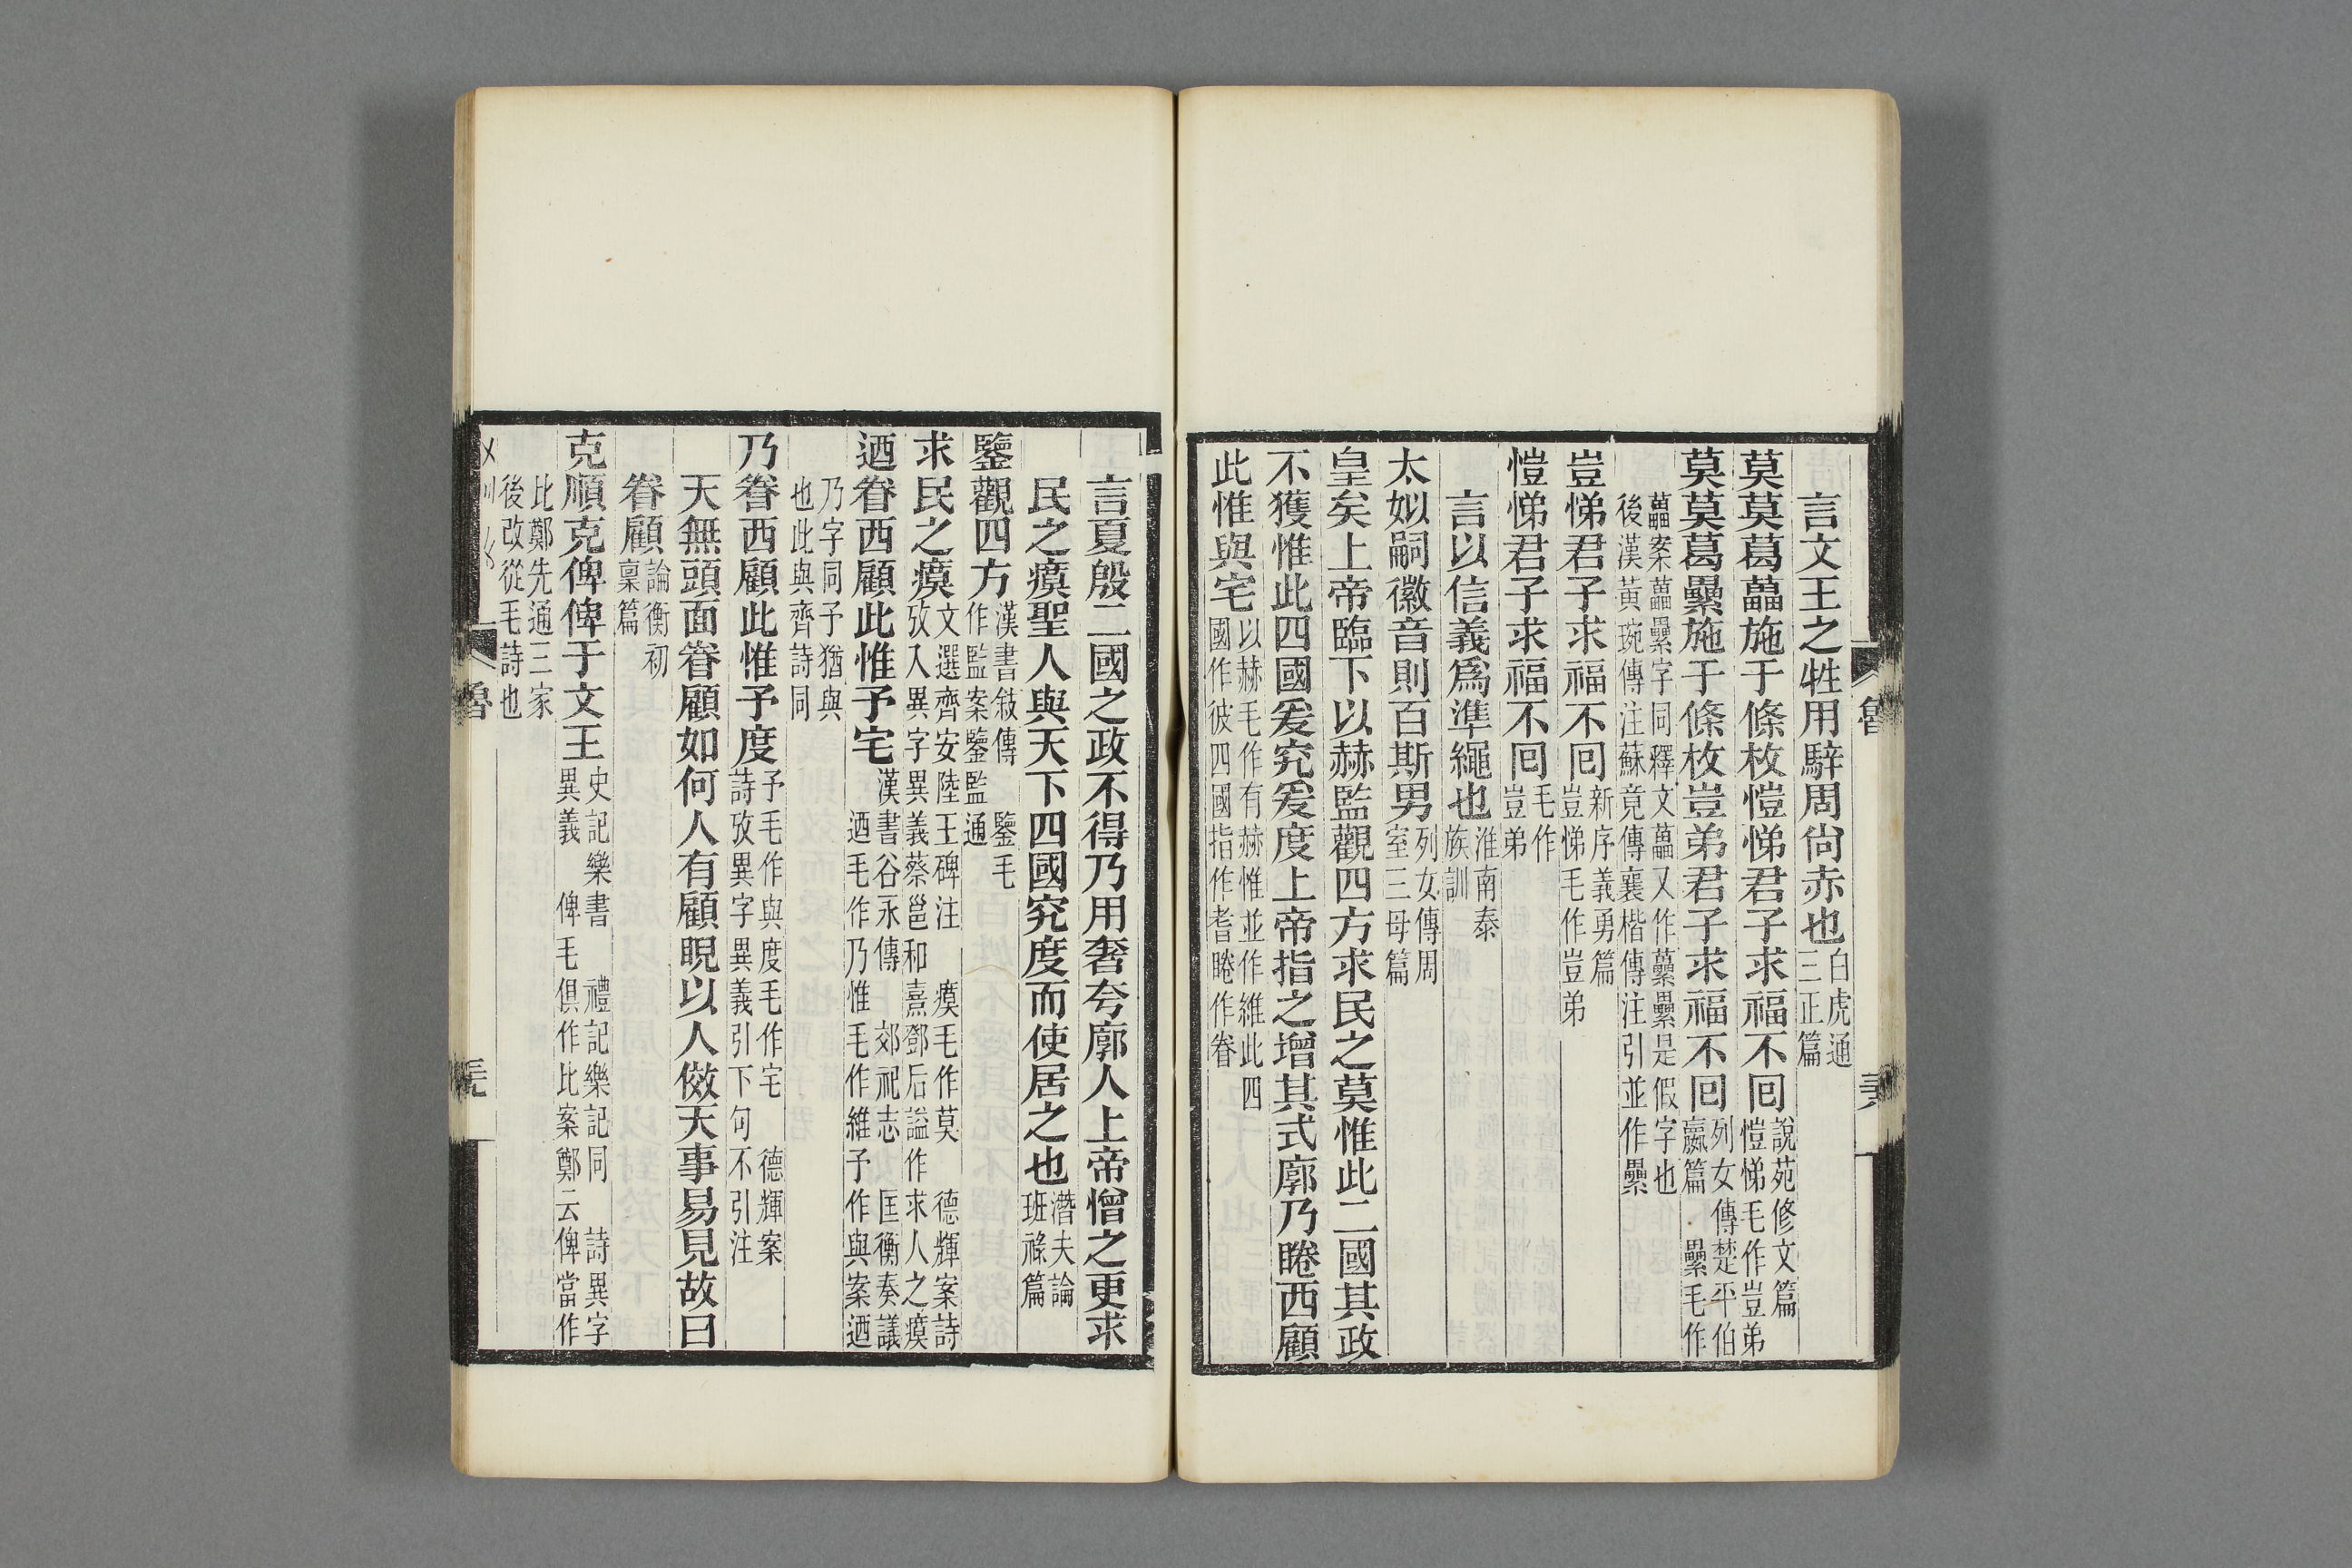 言文王之牲用騂周尙赤也白虎通三正篇
莫莫葛藟施于條枚愷悌君子求福不回說苑修文篇愷悌毛作豈弟
莫莫葛纍施于條枚豈弟君子求福不回列女傳楚平伯嬴篇 纍毛作
藟案藟纍字同釋文藟又作虆纍是假字也後漢黃琬傳注蘇竟傳襄楷傳注引並作纍
豈悌君子求福不回新序義勇篇豈悌毛作豈弟
愷悌君子求福不回毛作豈弟
言以信義爲準繩也淮南泰族訓
太姒嗣徽音則百斯男列女傳周室三母篇
皇矣上帝臨下以赫監觀四方求民之莫惟此二國其政
不獲惟此四國爰究爰度上帝指之增其式廓乃睠西顧
此惟與宅以赫毛作有赫惟並作維此四國作彼四國指作耆睠作眷
言夏殷二國之政不得乃用奢夸廓人上帝憎之更求
民之瘼聖人與天下四國究度而使居之也潛夫論班祿篇
鑒觀四方漢書敍傳 鑒毛作監案鑒監通
求民之瘼文選齊安陸王碑注 瘼毛作莫 德輝案詩攷入異字異義蔡邕和熹鄧后謚作求人之瘼
迺眷西顧此惟予宅漢書谷永傳 郊祀志 匡衡奏議 迺毛作乃惟毛作維予作與案迺
乃字同予猶與也此與齊詩同
乃眷西顧此惟予度予毛作與度毛作宅 德輝案詩攷異字異義引下句不引注
天無頭面眷顧如何人有顧睨以人傚天事易見故曰
眷顧論衡初稟篇
克順克俾俾于文王史記樂書 禮記樂記同 詩異字異義 俾毛俱作比案鄭云俾當作
比鄭先通三家後改從毛詩也
魯
魯